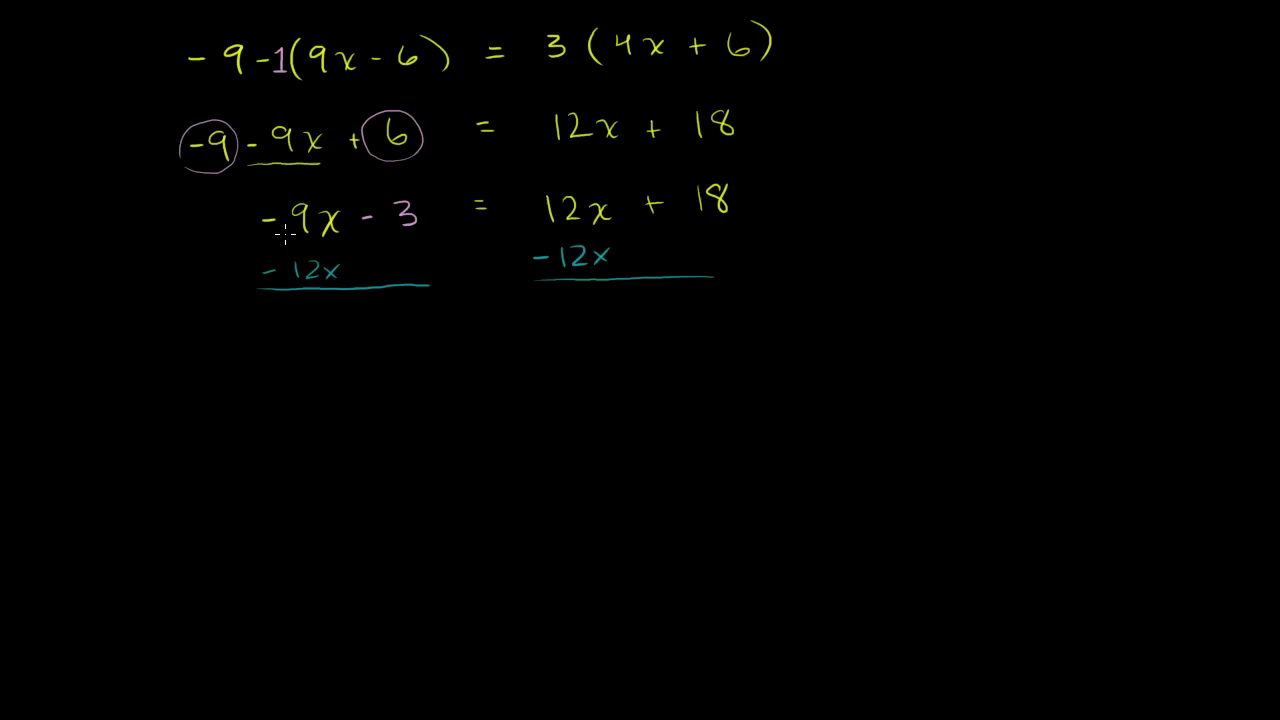 -9-1(9x-6) = 3(4x+6)
-9-9x+6 = 12x+18
-9x-3 = 12x+18
-12x -12x